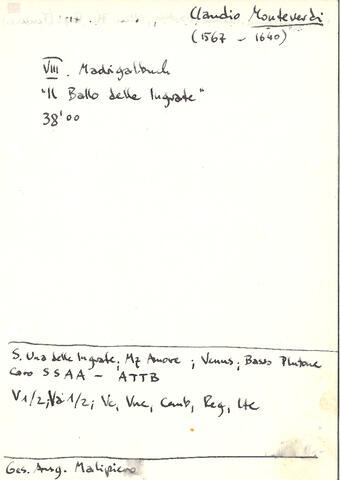 Claudio Monteverdi
(1567 - 1640)
VIII. Madrigalbuch
"Il Ballo delle Ingrate"
38'00
S. Una delle Ingrate; Mz Amore ; Venus; Basso Plutone
Coro SSAA - ATTB
V1/2; Va 1/2; Vc, Vne, Cemb, Reg, Lte
Ges. Ausg. Malipiero